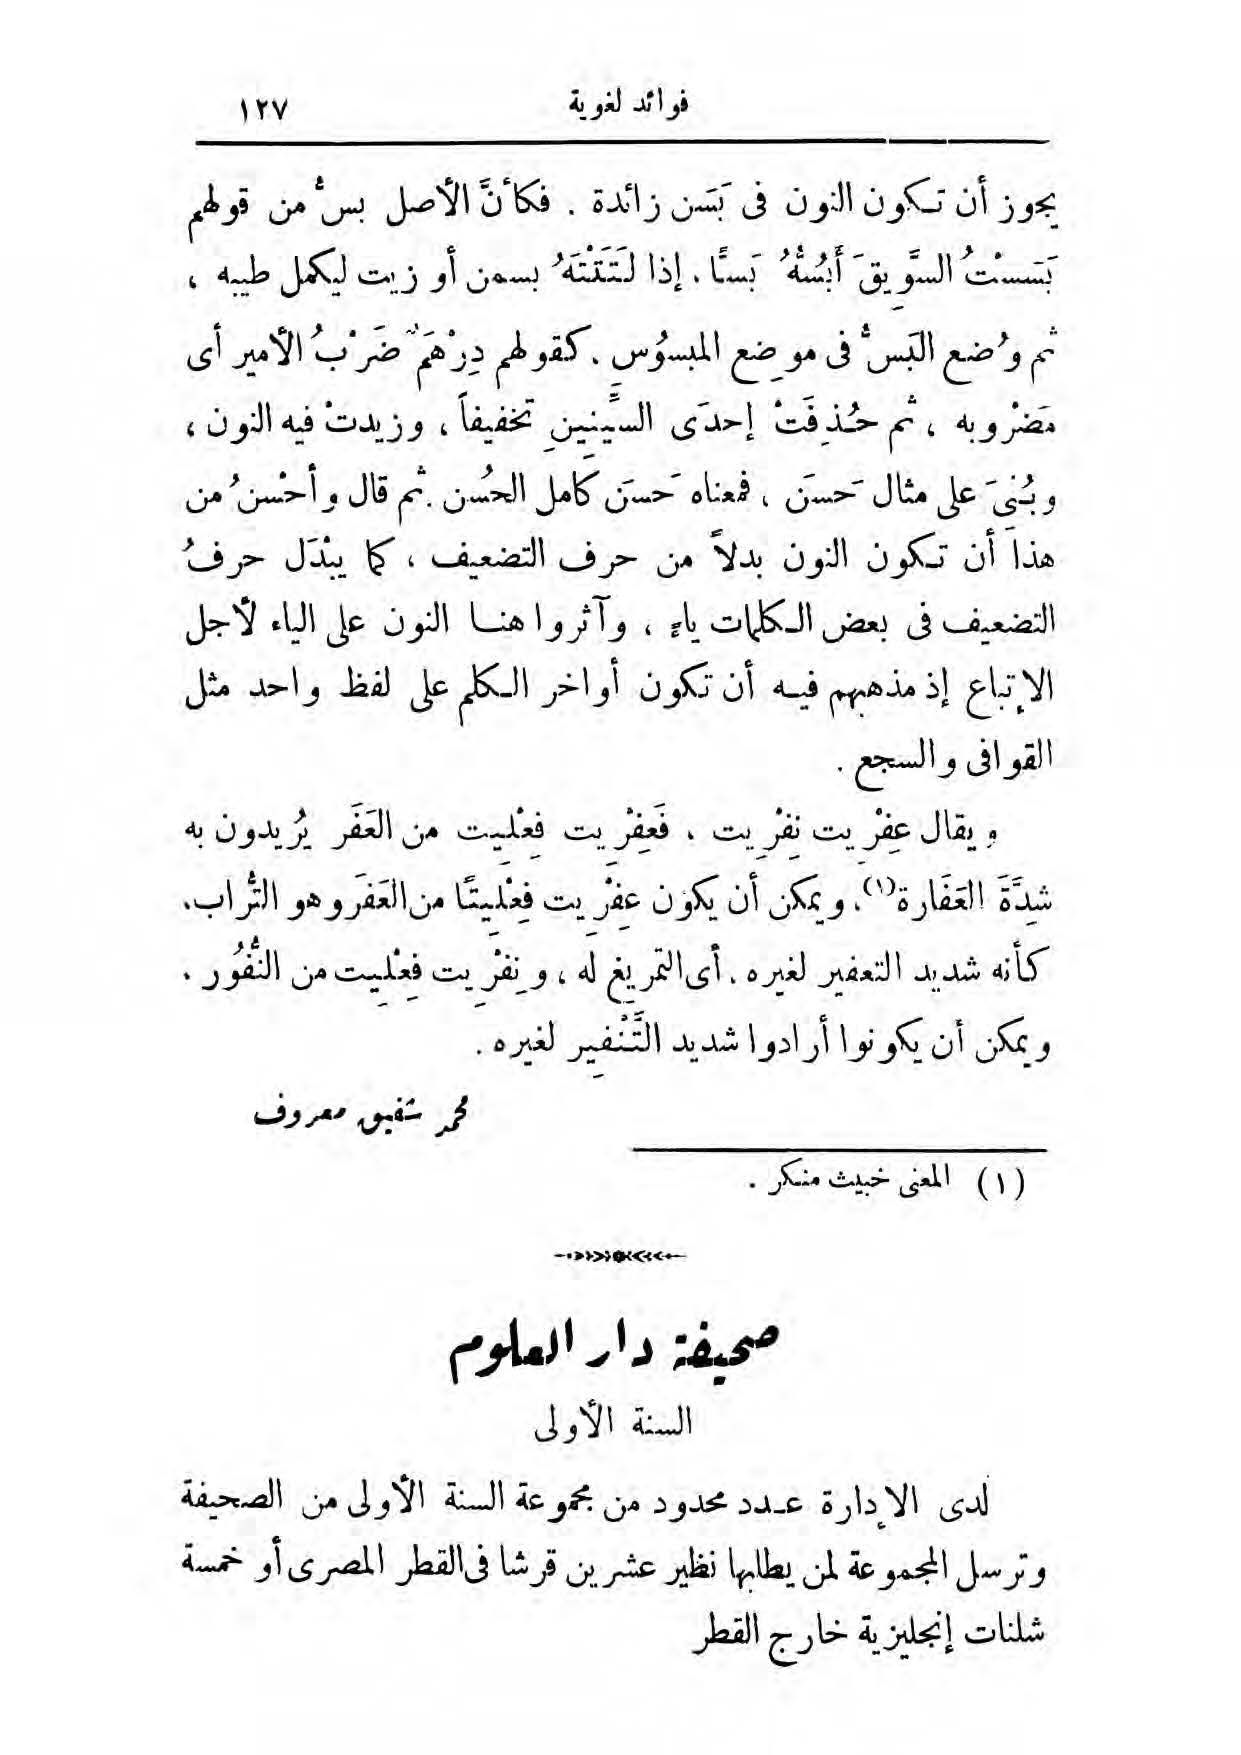 فوائد لغوية ١٢٧
يجوز أن تكون النون فى بَسَن زائدة . فكأنَّ الأصل بسُّ من قولهم
بَسَسْتُ السَّوِيقَ أَبُسُّهُ بَسًّا ، إذا لَتَتْتَهُ بسمن أو زيت ليكمل طيبه ،
ثم وُضع البَسُّ فى موضِع المبسوُس . كقولهم دِرْهَمٌ ضَرْبُ الأمير أى
مَضْروبه ، ثم حُذِفَتْ إحدَى السِّينينِ تخفيفاً ، وزيدتْ فيه النون ،
وبُنىَ على مثال حَسَن ، فمعناه حَسَن كامل الحُسن . ثم قال وأحْسنُ من
هذا أن تكون النون بدلاً من حرف التضعيف ، كما يبْدَل حرفُ
التضعيف فى بعض الكلمات ياء ، وآثروا هنا النون على الياء لأجل
الإتباع إذ مذهبهم فيه أن تكون أواخر الكلم على لفظ واحد مثل
القوافى والسجع .
ويقال عِفْرِيت نِفْرِيت ، فَعِفْرِيت فِعْلِيت من العَفَر يُريدون به
شِدَّةَ العَفَارة(١)، ويمكن أن يكون عِفْرِيت فِعْلِيتًا من العَفَر وهو التُّراب،
كأنه شديد التعفير لغيره . أى التمريغ له ، ونِفْرِيت فِعْلِيت من النُّفُور .
ويمكن أن يكونوا أرادوا شديد التَّنْفِير لغيره .
محمد شفيق معروف
(١) المعنى خبيث منكر .
صحيفة دار العلوم
السنة الأولى
لدى الإدارة عدد محدود من مجموعة السنة الأولى من الصحيفة
وترسل المجموعة لمن يطلبها نظير عشرين قرشا فى القطر المصرى أو خمسة
شلنات إنجليزية خارج القطر